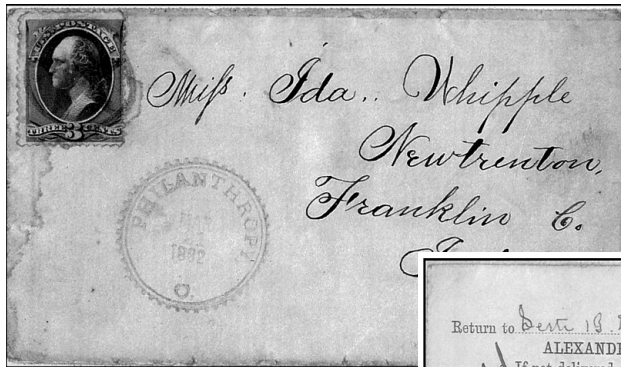 U.S. POSTAGE
THREE 3 CENTS
Miss. Ida.. Whipple
Newtrenton,
Franklin C.
PHILANTHROPY
1882
O.
Return to
ALEXAND
If not delivered